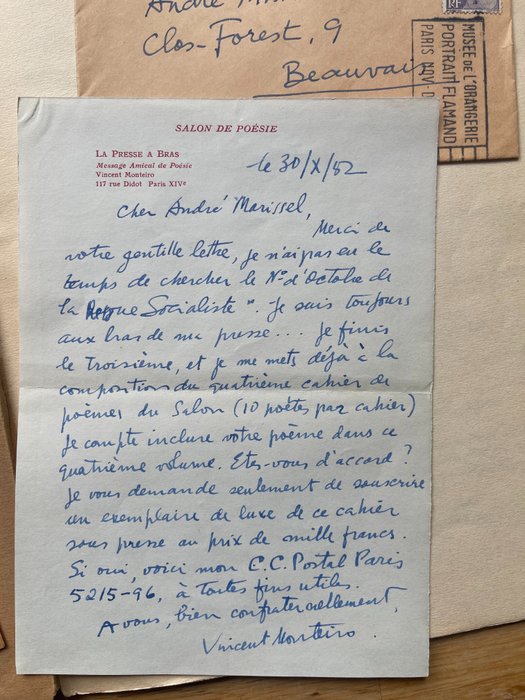 Clos-Forest, 9
Beauvais
RF
MUSÉE DE L'ORANGERIE
PORTRAIT FLAMAND
PARIS NOV-D
SALON DE POÉSIE
LA PRESSE A BRAS
Message Amical de Poésie
Vincent Monteiro
117 rue Didot Paris XIVe
le 30/X/52
Cher André Marissel,
Merci de
votre gentille lettre, je n'ai pas eu le
temps de chercher le No d'Octobre de
la Revue Socialiste". Je suis toujours
aux bras de ma presse... Je finis
le troisième, et je me mets déjà à la
composition du quatrième cahier de
poèmes du Salon (10 poètes par cahier)
Je compte inclure votre poème dans ce
quatrième volume. Etes-vous d'accord ?
Je vous demande seulement de souscrire
un exemplaire de luxe de ce cahier
sous presse au prix de mille francs.
Si oui, voici mon C.C. Postal Paris
5215-96, à toutes fins utiles.
A vous, bien confraternellement,
Vincent Monteiro.